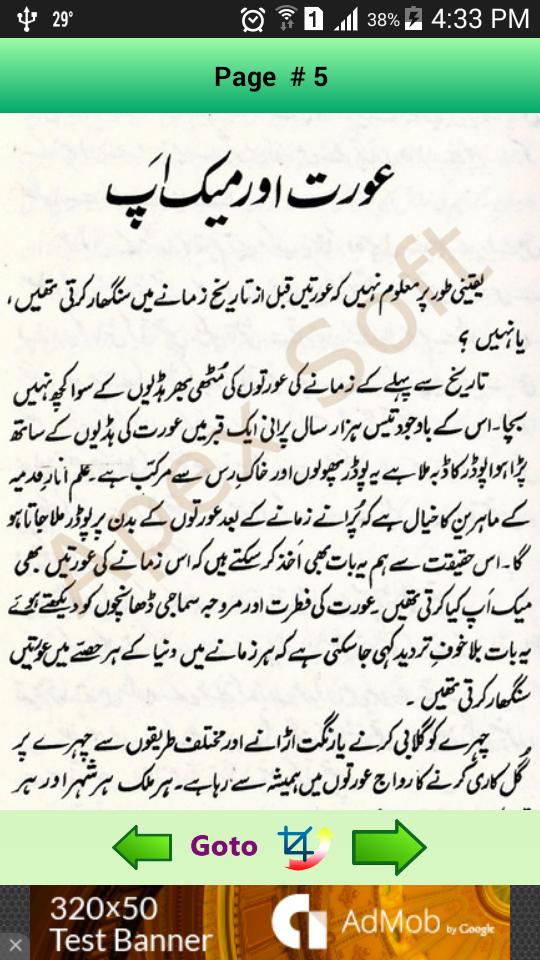 29° 1 38% 4:33 PM
Page # 5
عورت اور میک اَپ
یقینی طور پر معلوم نہیں کہ عورتیں قبل از تاریخ زمانے میں سنگھار کرتی تھیں،
یا نہیں ؟
تاریخ سے پہلے کے زمانے کی عورتوں کی مُٹھی بھر ہڈیوں کے سوا کچھ نہیں
بچا۔ اس کے باوجود تیس ہزار سال پرانی ایک قبر میں عورت کی ہڈیوں کے ساتھ
پڑا ہوا پوڈر کا ڈبہ ملا ہے یہ پوڈر پھولوں اور خاک رس سے مرکب ہے۔ علم آثارِ قدمیہ
کے ماہرین کا خیال ہے کہ پُرانے زمانے کے بعد عورتوں کے بدن پر پوڈر ملا جاتا ہو
گا۔ اس حقیقت سے ہم یہ بات بھی اَخذ کر سکتے ہیں کہ اس زمانے کی عورتیں بھی
میک اَپ کیا کرتی تھیں۔ عورت کی فطرت اور مروجہ سماجی ڈھانچوں کو دیکھتے ہوئے
یہ بات بلا خوفِ تردید کہی جا سکتی ہے کہ ہر زمانے میں دنیا کے ہر حصے میں عورتیں
سنگھار کرتی تھیں ۔
چہرے کو گلابی کرنے یا رنگت اڑانے اور مختلف طریقوں سے چہرے پر
گل کاری کرنے کا رواج عورتوں میں ہمیشہ سے رہا ہے۔ ہر ملک ہر شہر اور ہر
Apex Soft.
Goto
320x50
Test Banner
AdMob by Google